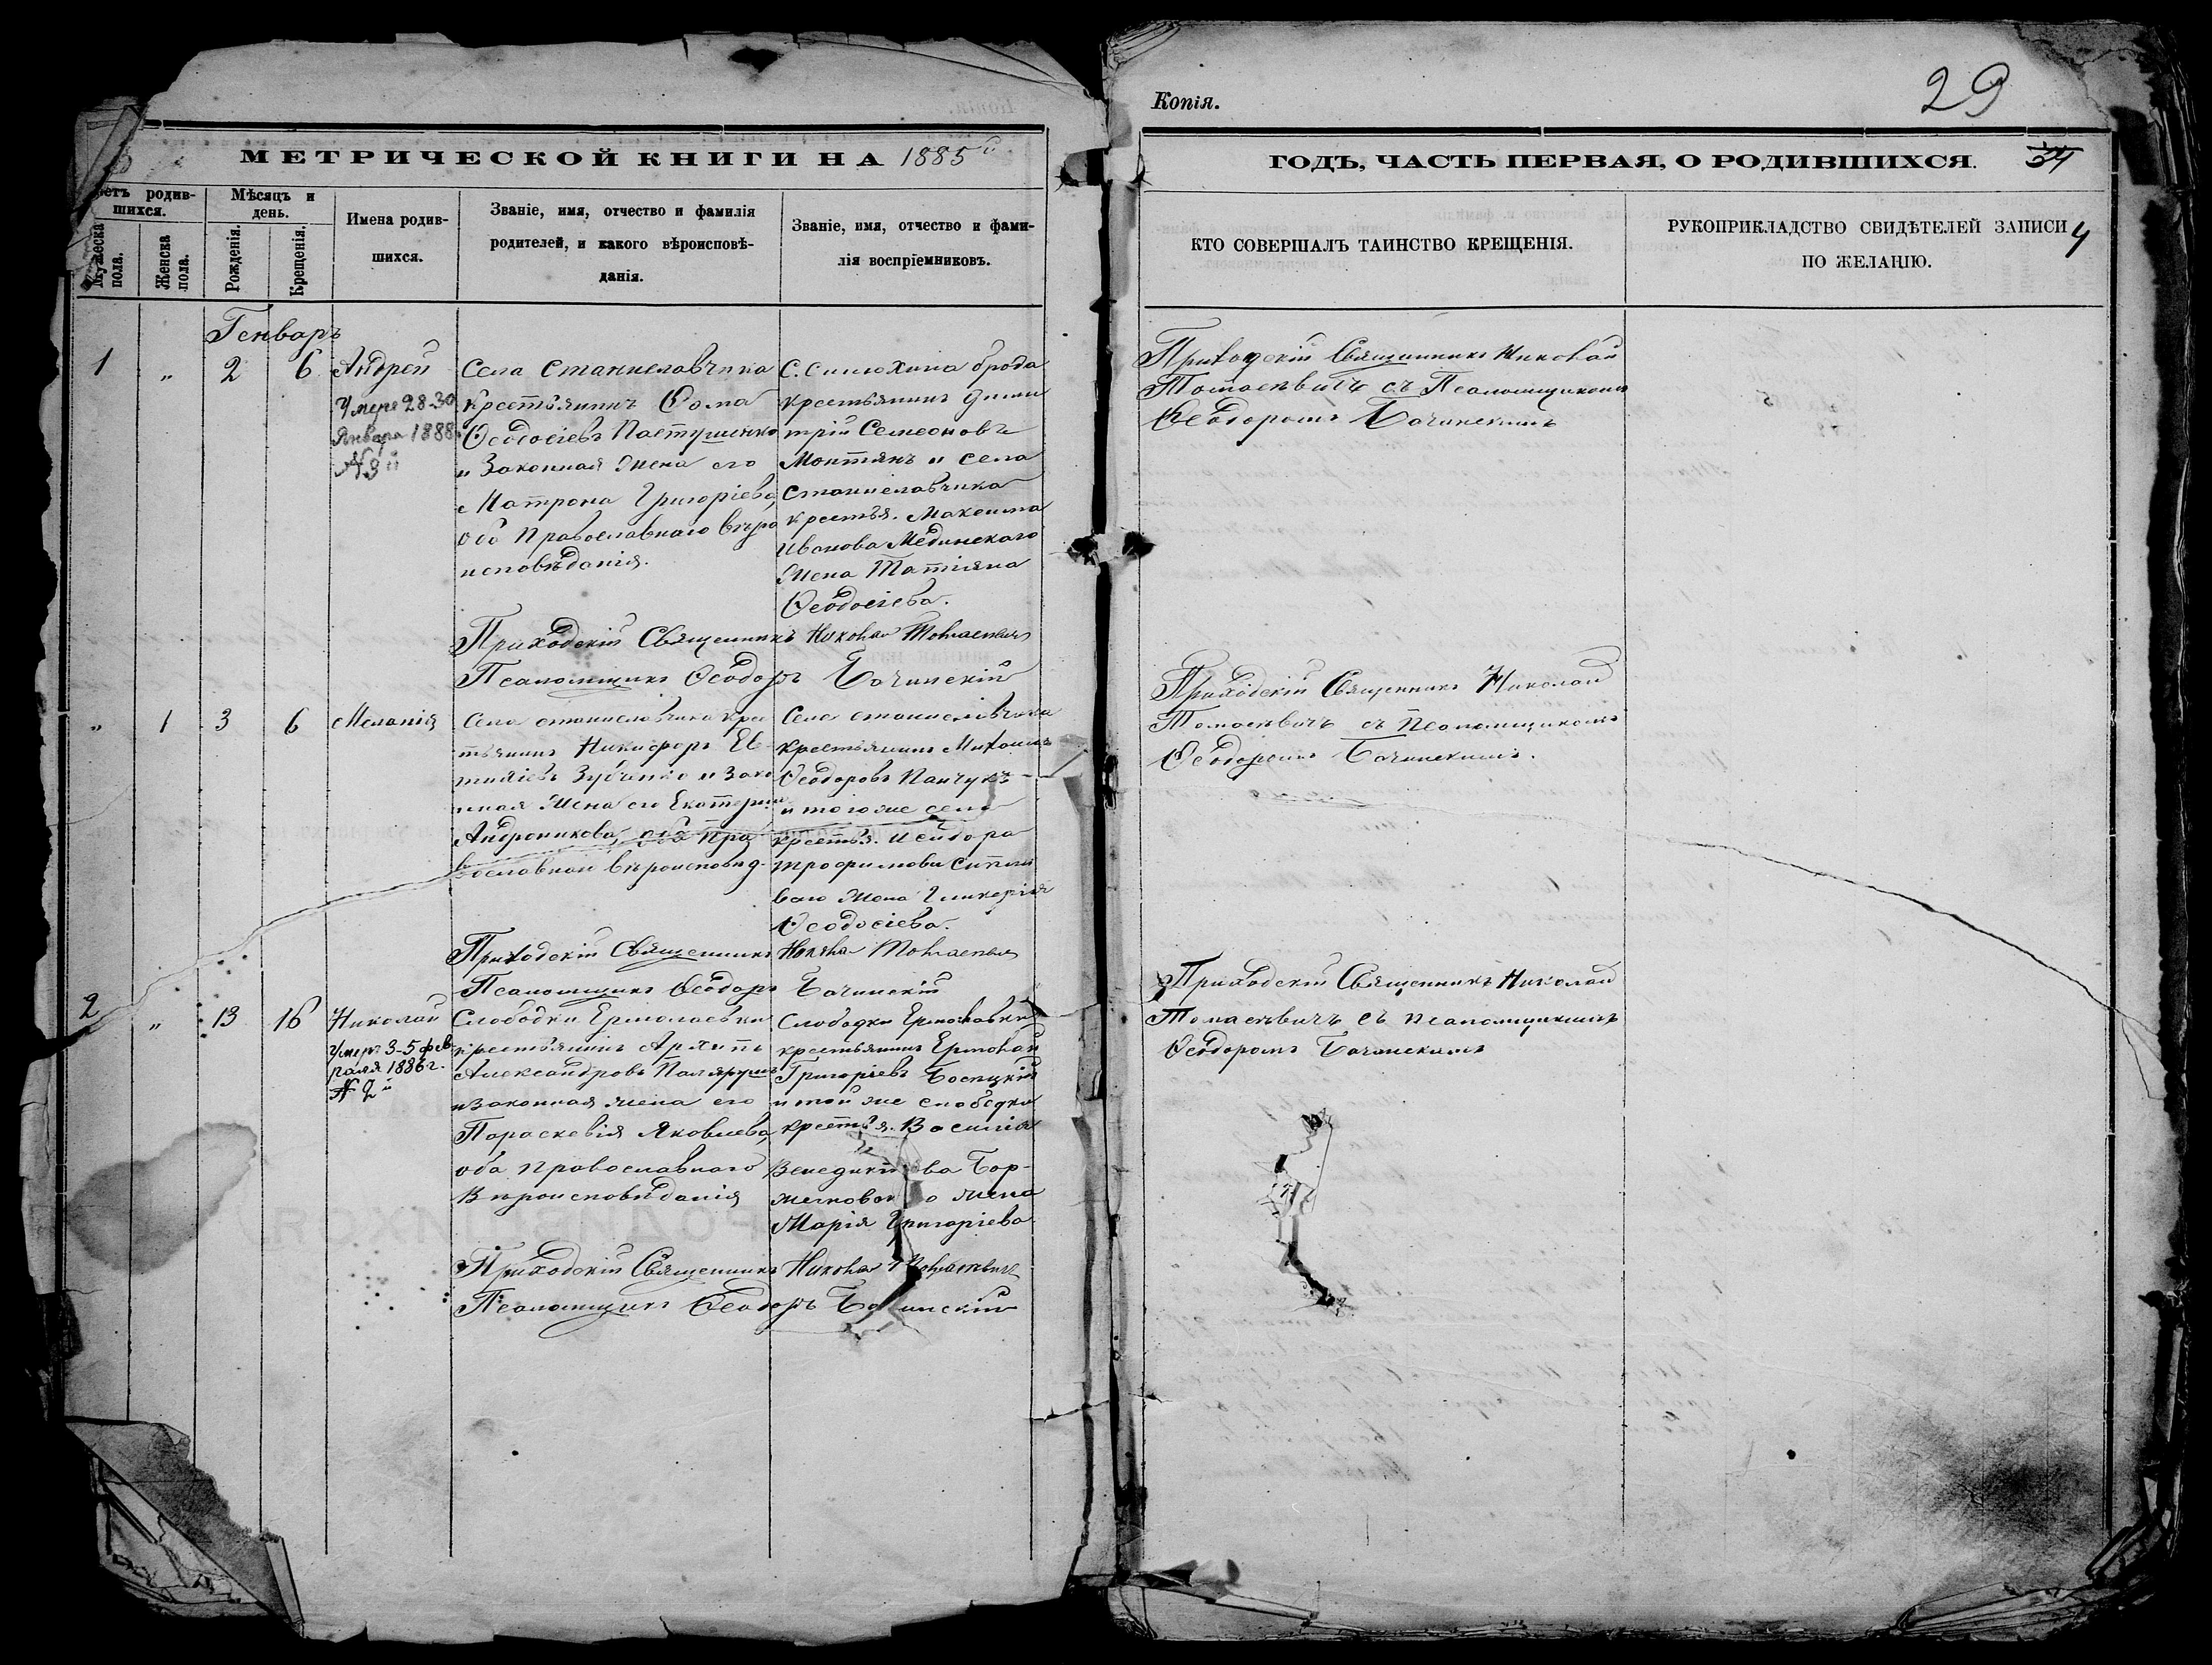 Копія.
29
МЕТРИЧЕСКОЙ КНИГИ НА 1885й
ГОДЪ, ЧАСТЬ ПЕРВАЯ, О РОДИВШИХСЯ.
34
4
родив-
шихся.
Мужеска
пола.
Женска
пола.
Мѣсяцъ и
день.
Рожденія.
Крещенія.
Имена родив-
шихся.
Званіе, имя, отчество и фамилія
родителей, и какого вѣроисповѣ-
данія.
Званіе, имя, отчество и фами-
лія воспріемниковъ.
КТО СОВЕРШАЛЪ ТАИНСТВО КРЕЩЕНІЯ.
РУКОПРИКЛАДСТВО СВИДѢТЕЛЕЙ ЗАПИСИ
ПО ЖЕЛАНІЮ.
Генварь
1 „ 2 6
Андрей
Умеръ 28-30
Января 1888
№3й
Села Станиславчика
крестьянинъ Ѳома
Ѳеодосіевъ Пастушенко
и Законная жена его
Матрона Григоріева,
оба Православнаго вѣро
исповѣданія.
С. Синюхина брода
крестьянинъ Дими
трій Семеоновъ
Монтянъ и села
Станиславчика
крестья. Максима
Иванова Мединскаго
жена Татіяна
Ѳеодосіева.
Приходскій Священникъ Николай Томасевичъ
Псаломщикъ Ѳеодоръ Бачинскій
Приходскій Священникъ Николай
Томасевичъ съ Псаломщикомъ
Ѳеодоромъ Бачинскимъ
„ 1 3 6
Меланія
Села станиславчика кре
тьянинъ Никифоръ Ев
тихіевъ Зубенко и зако
нная жена его Екатерин
Андроникова, оба пра
вославнаго вѣроисповид.
Села станиславчика
крестьянинъ Михаилъ
Ѳеодоровъ Панчукъ
и того же села
крестья. Исидора
трофимова
ваго жена Гликерія
Ѳеодосіева.
Приходскій Священникъ Николай Томасевичъ
Псаломщикъ Ѳеодоръ Бачинскій
Приходскій Священникъ Николай
Томасевичъ съ псаломщикомъ
Ѳеодоромъ Бачинскимъ.
2 „ 13 16
Николай
Умеръ 3-5 фев-
раля 1886 г.
№ 2й
Слободки Ермолаевки
крестьянинъ Архипъ
Александровъ
и законная жена его
Параскевія Яковлева,
оба православнаго
Вѣроисповѣданія
Слободки Ермолаевки
крестьянинъ Ермолай
Григоріевъ
и той же слободки
крестья. Василія
жена
Марія Григоріева
Приходскій Священникъ Николай Томасевичъ
Псаломщикъ Ѳеодоръ Бачинскій
Приходскій Священникъ Николай
Томасевичъ съ псаломщикомъ
Ѳеодоромъ Бачинскимъ